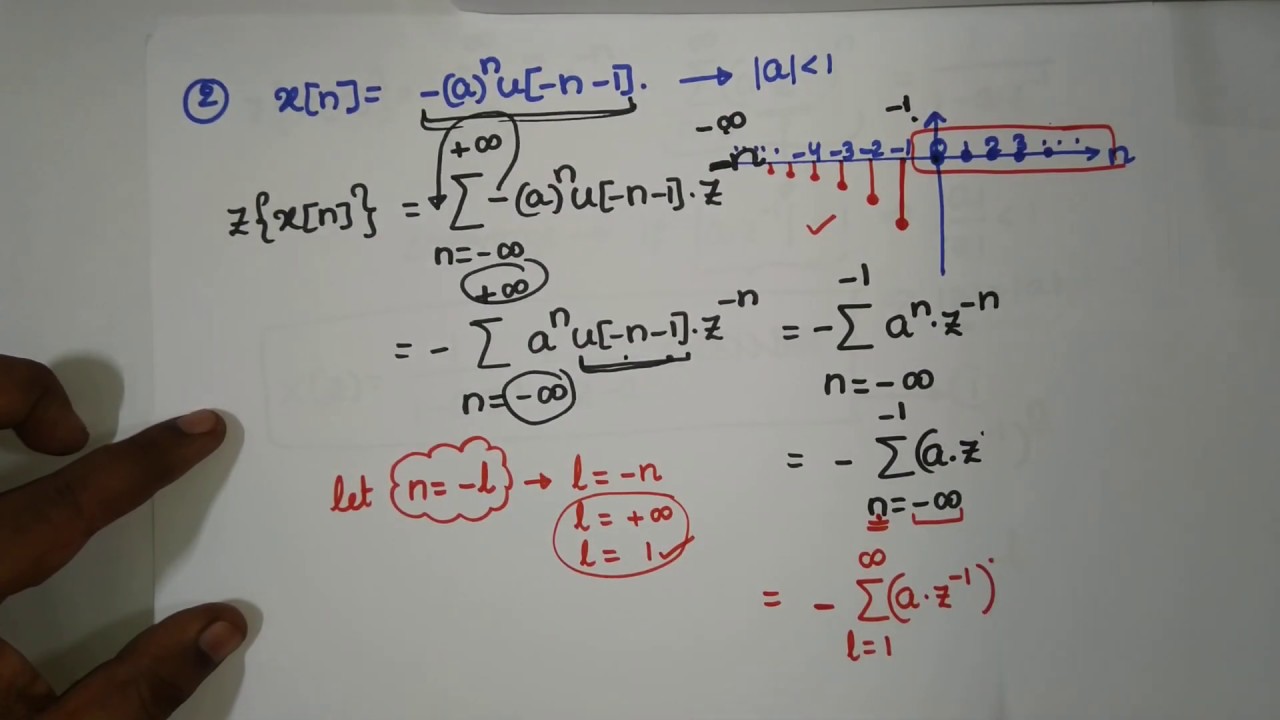 ② x[n] = -(a)ⁿu[-n-1]. → |a|<1
-∞ -1
... -4 -3 -2 -1 0 1 2 3 ... n
+∞
z{x[n]} = ∑ -(a)ⁿu[-n-1]·z⁻ⁿ
n=-∞
+∞ -1
= - ∑ aⁿu[-n-1]·z⁻ⁿ = -∑ aⁿ·z⁻ⁿ
n=-∞ n=-∞
-1
= - ∑(a·z
n=-∞
let n=-l → l=-n
l=+∞
l= 1✓
∞
= - ∑(a·z⁻¹)
l=1